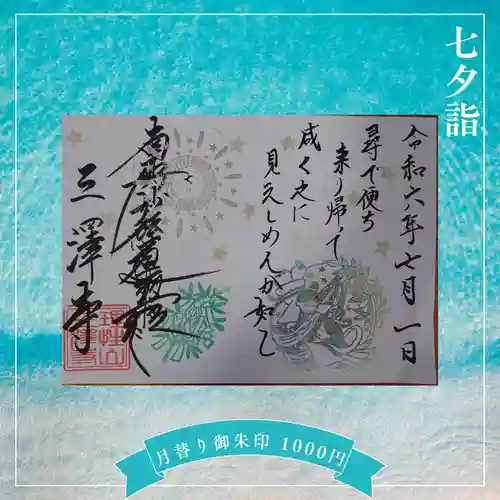 七夕詣
令和六年七月一日
尋で便ち
来り帰って
咸く之に
見えしめんが如し
南無日蓮大菩薩
三澤寺
月替り御朱印 1000円